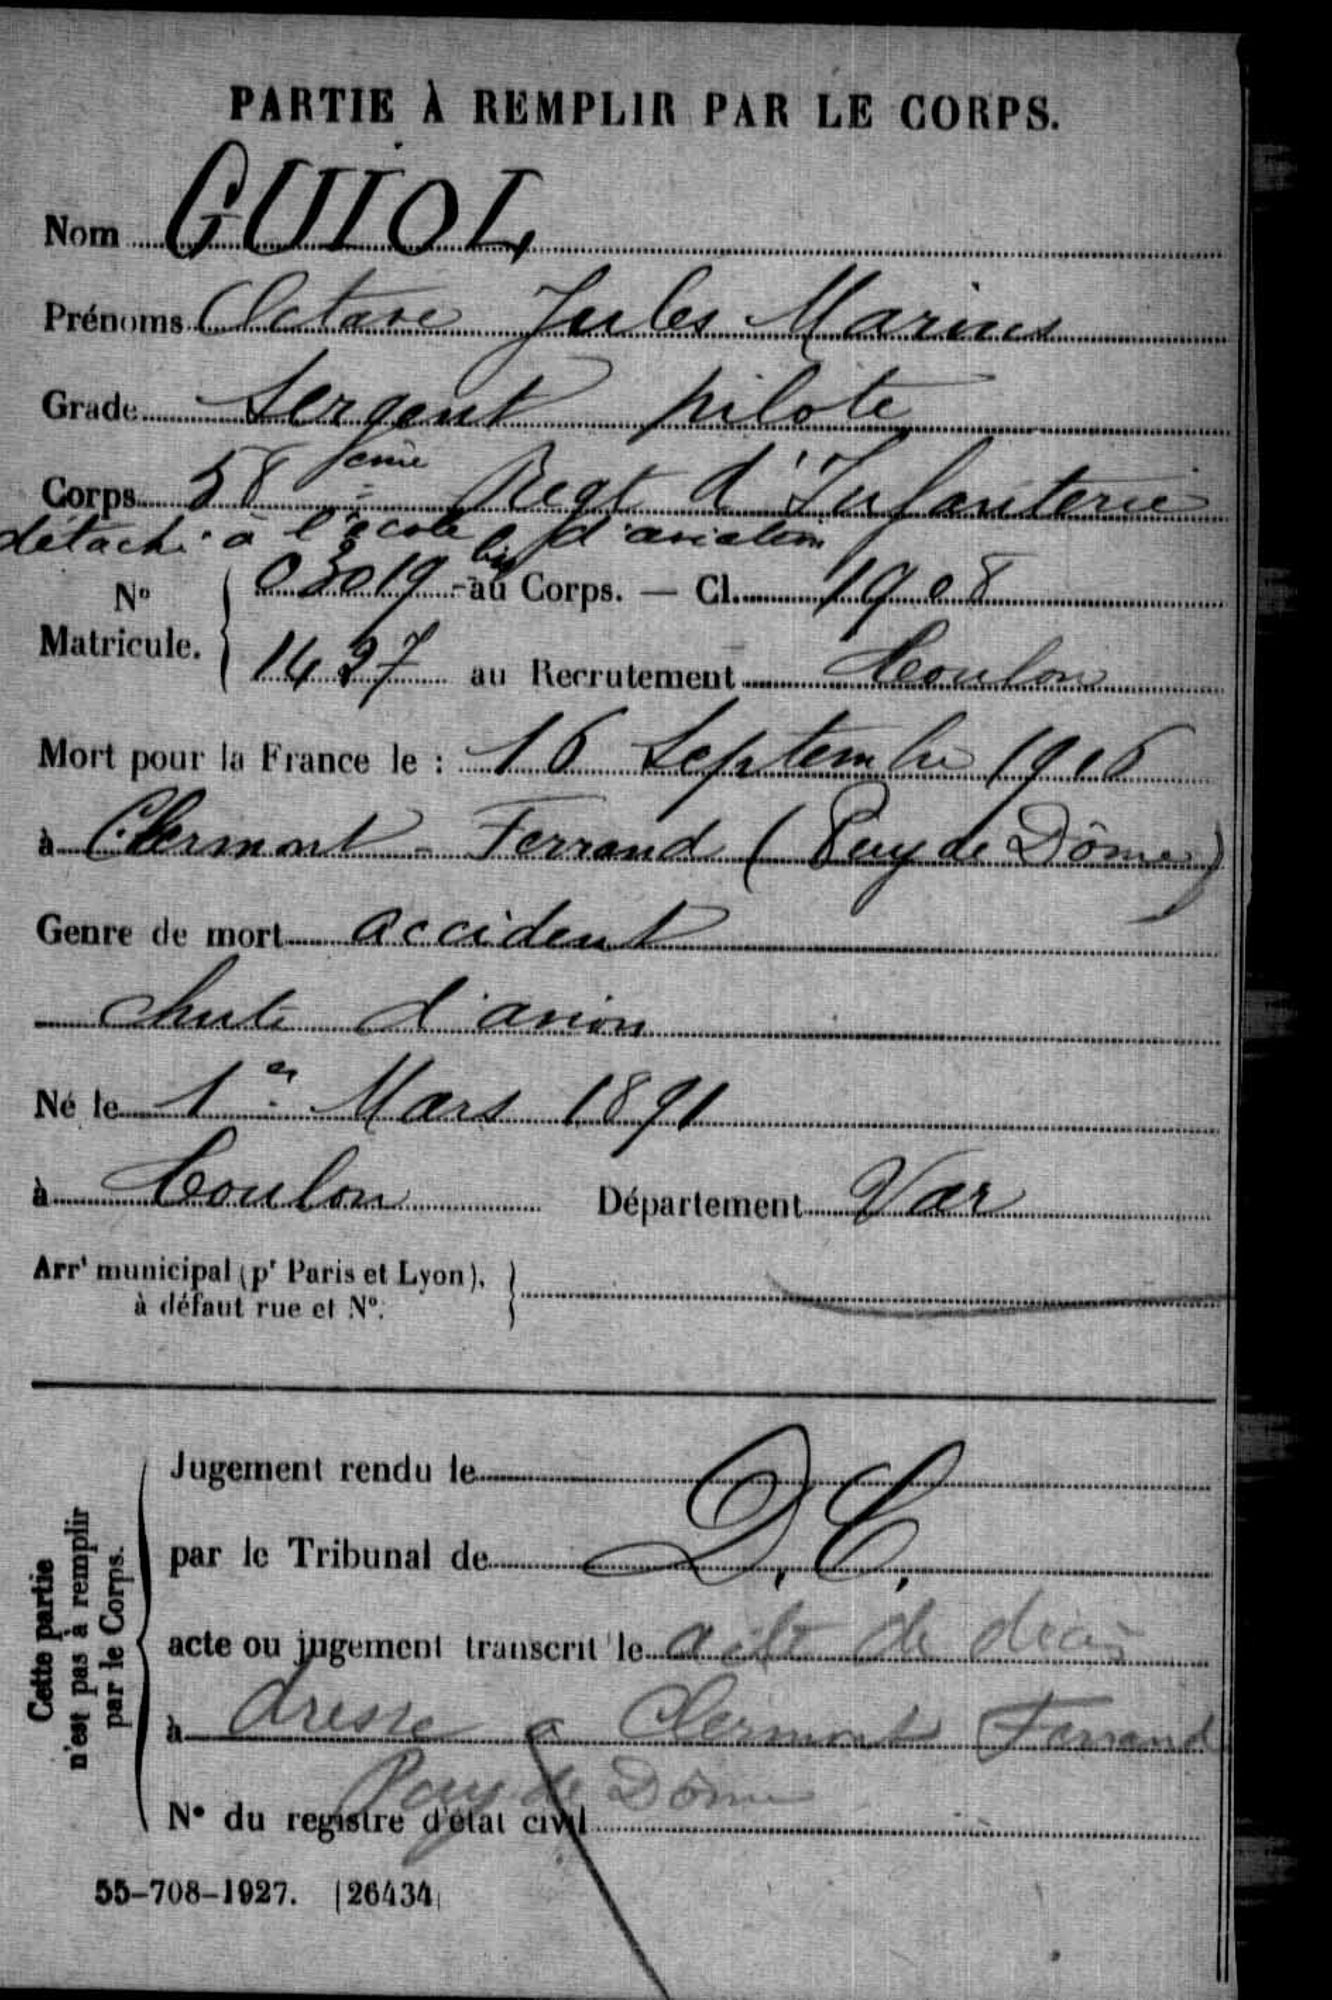 PARTIE À REMPLIR PAR LE CORPS.
Nom GUIOL
Prénoms Octave Jules Marius
Grade Sergent pilote
Corps 58ème Regt d'Infanterie
détaché à l'école d'aviation
No Matricule. { 03019 bis au Corps. — Cl. 1908
1427 au Recrutement Toulon
Mort pour la France le : 16 Septembre 1916
à Clermont-Ferrand (Puy de Dôme)
Genre de mort accident
chute d'avion
Né le 1er Mars 1891
à Toulon Département Var
Arrt municipal (pr Paris et Lyon),
à défaut rue et No.
Cette partie
n'est pas à remplir
par le Corps.
Jugement rendu le
par le Tribunal de D.C.
acte ou jugement transcrit le acte de décès
à dressé a Clermont Ferrand
Puy de Dôme
No du registre d'état civil
55-708-1927. [26434]